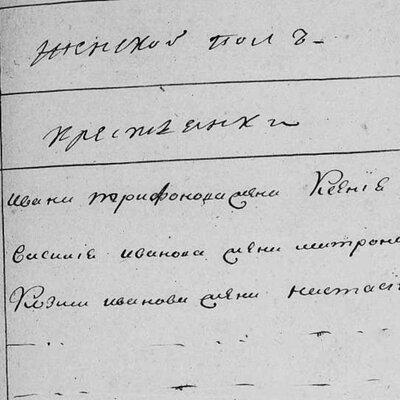 женской полъ
крестьянки
ивана трифонова жена Ксения
василия иванова жена митроне
Козми иванова жена настас